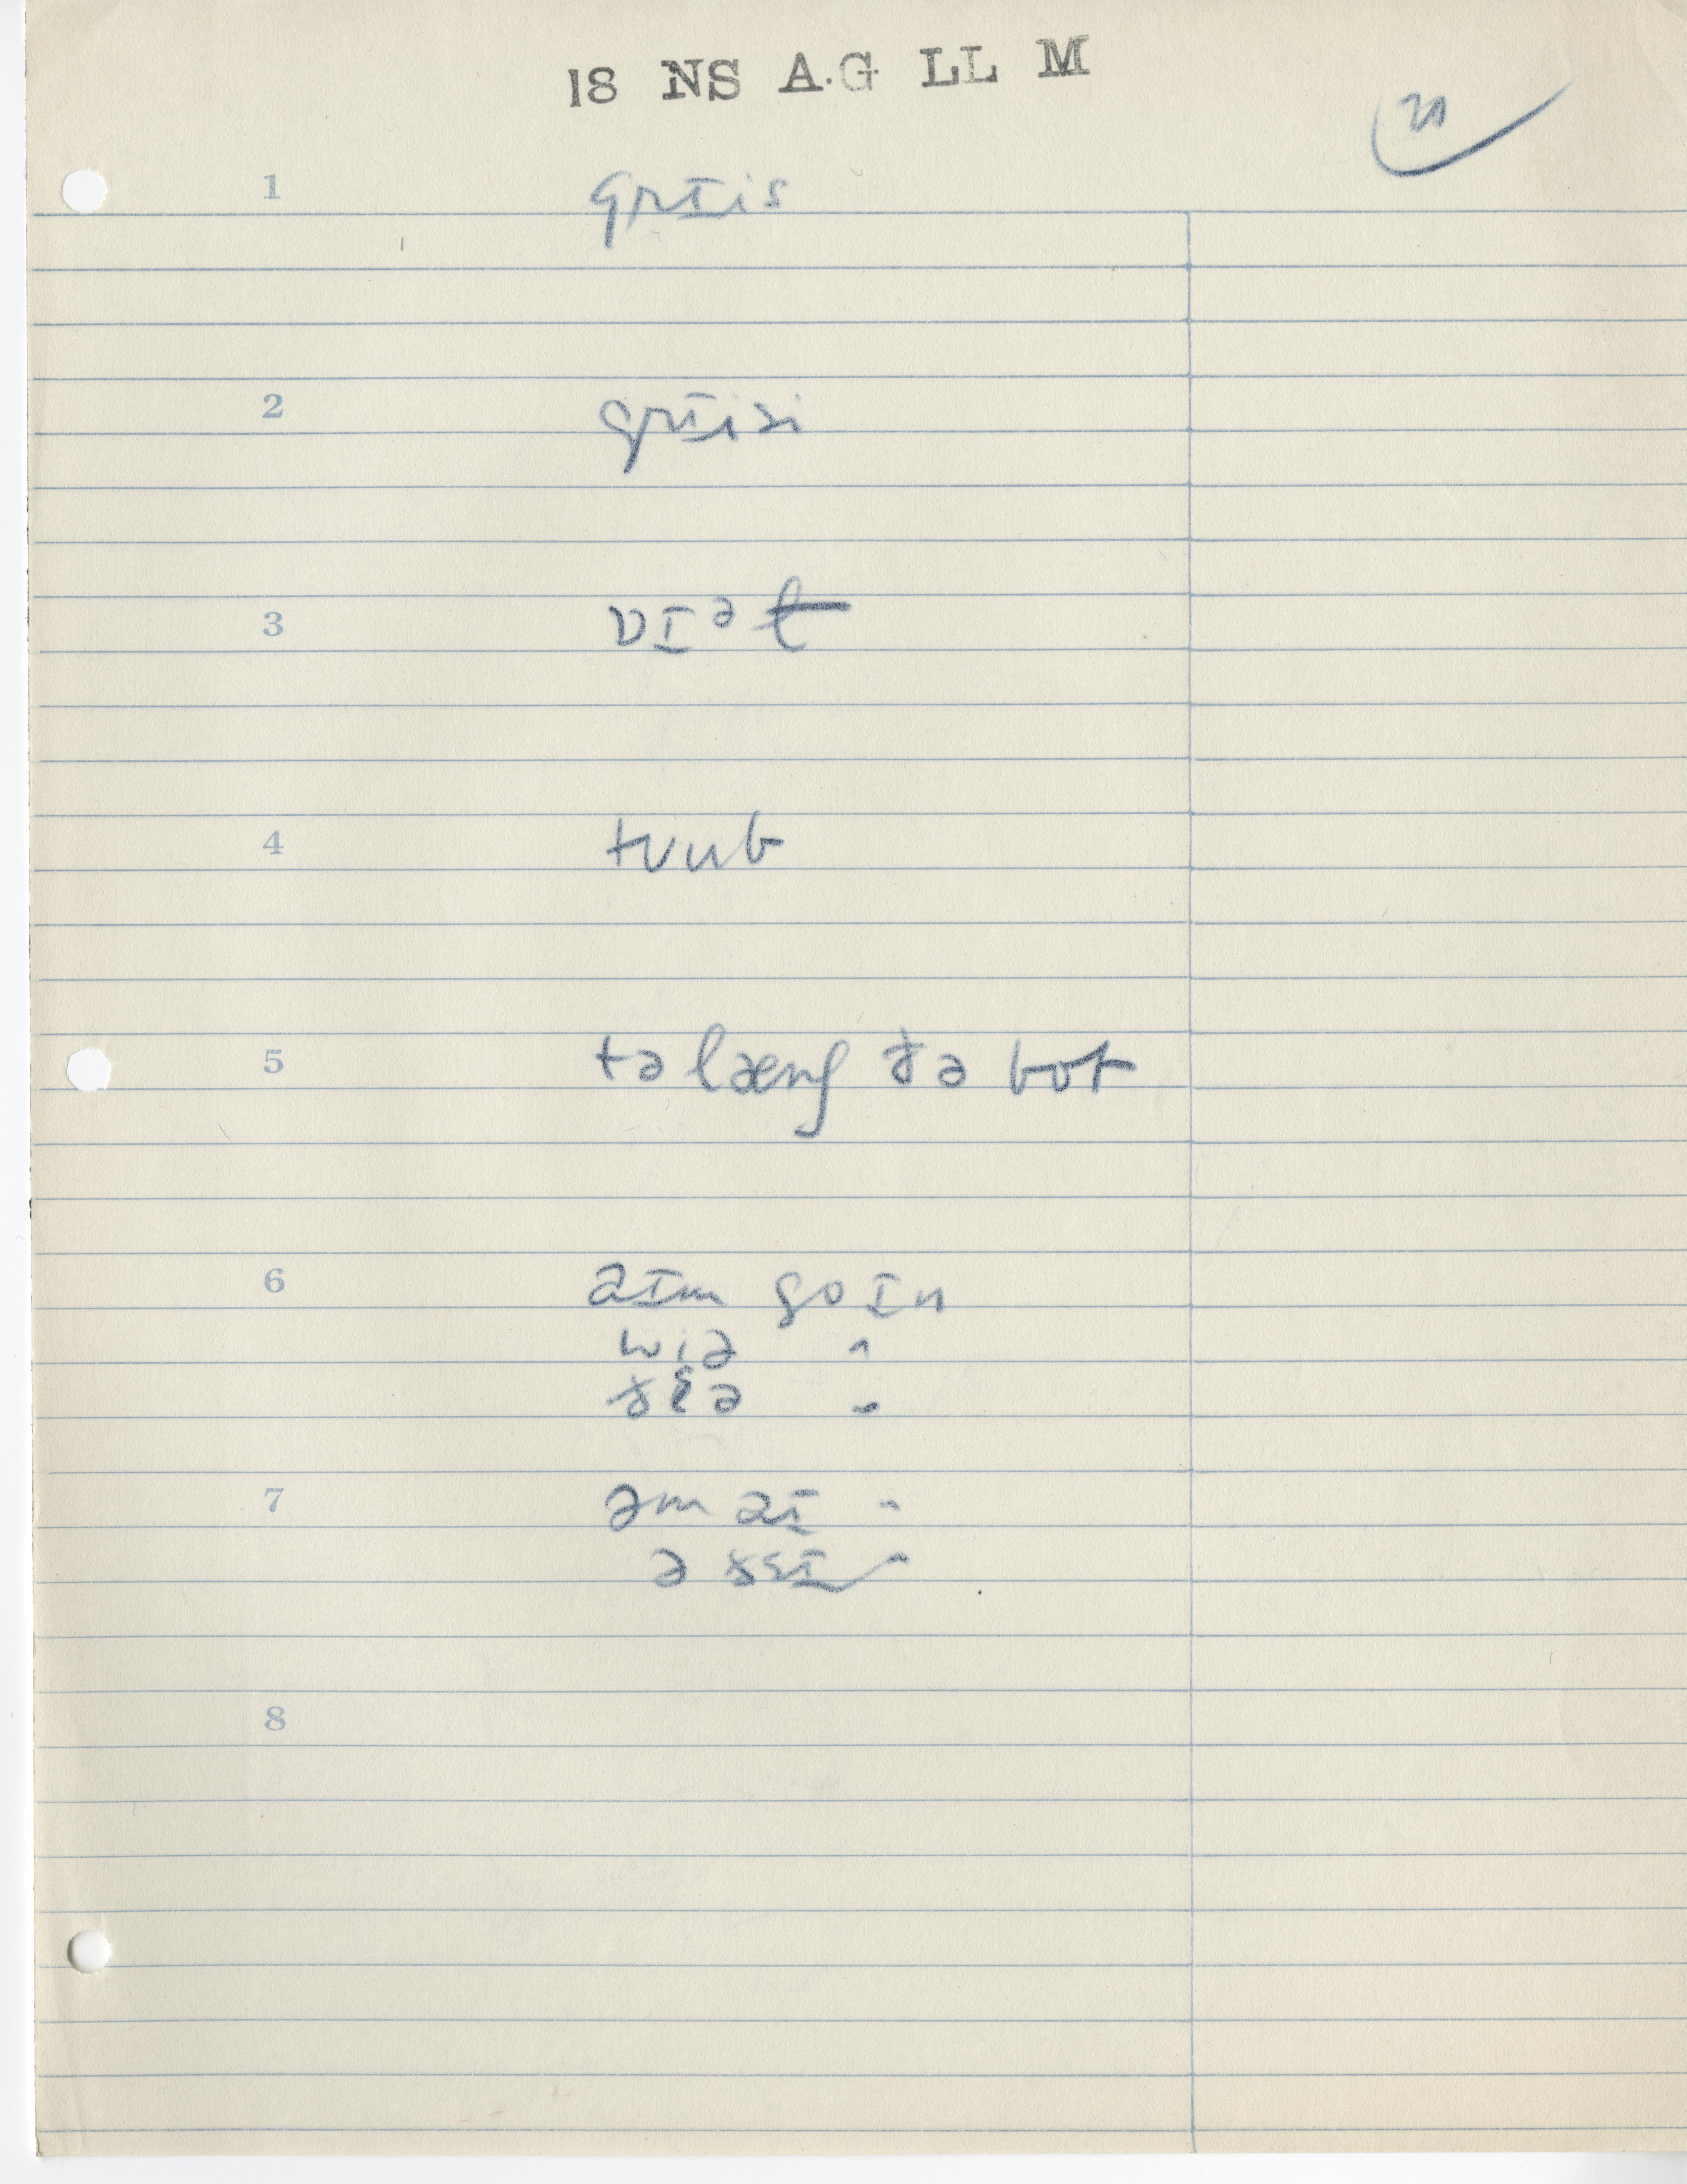 18 NS A.G LL M
21
1 grɪis
2 grɪisi
3 vɪəɫ
4 tʊub
5 tə læng ðə bot
6 aɪm goɪn
wiə "
ðɛə "
7 əm aɪ "
ə ðɛɪ "
8